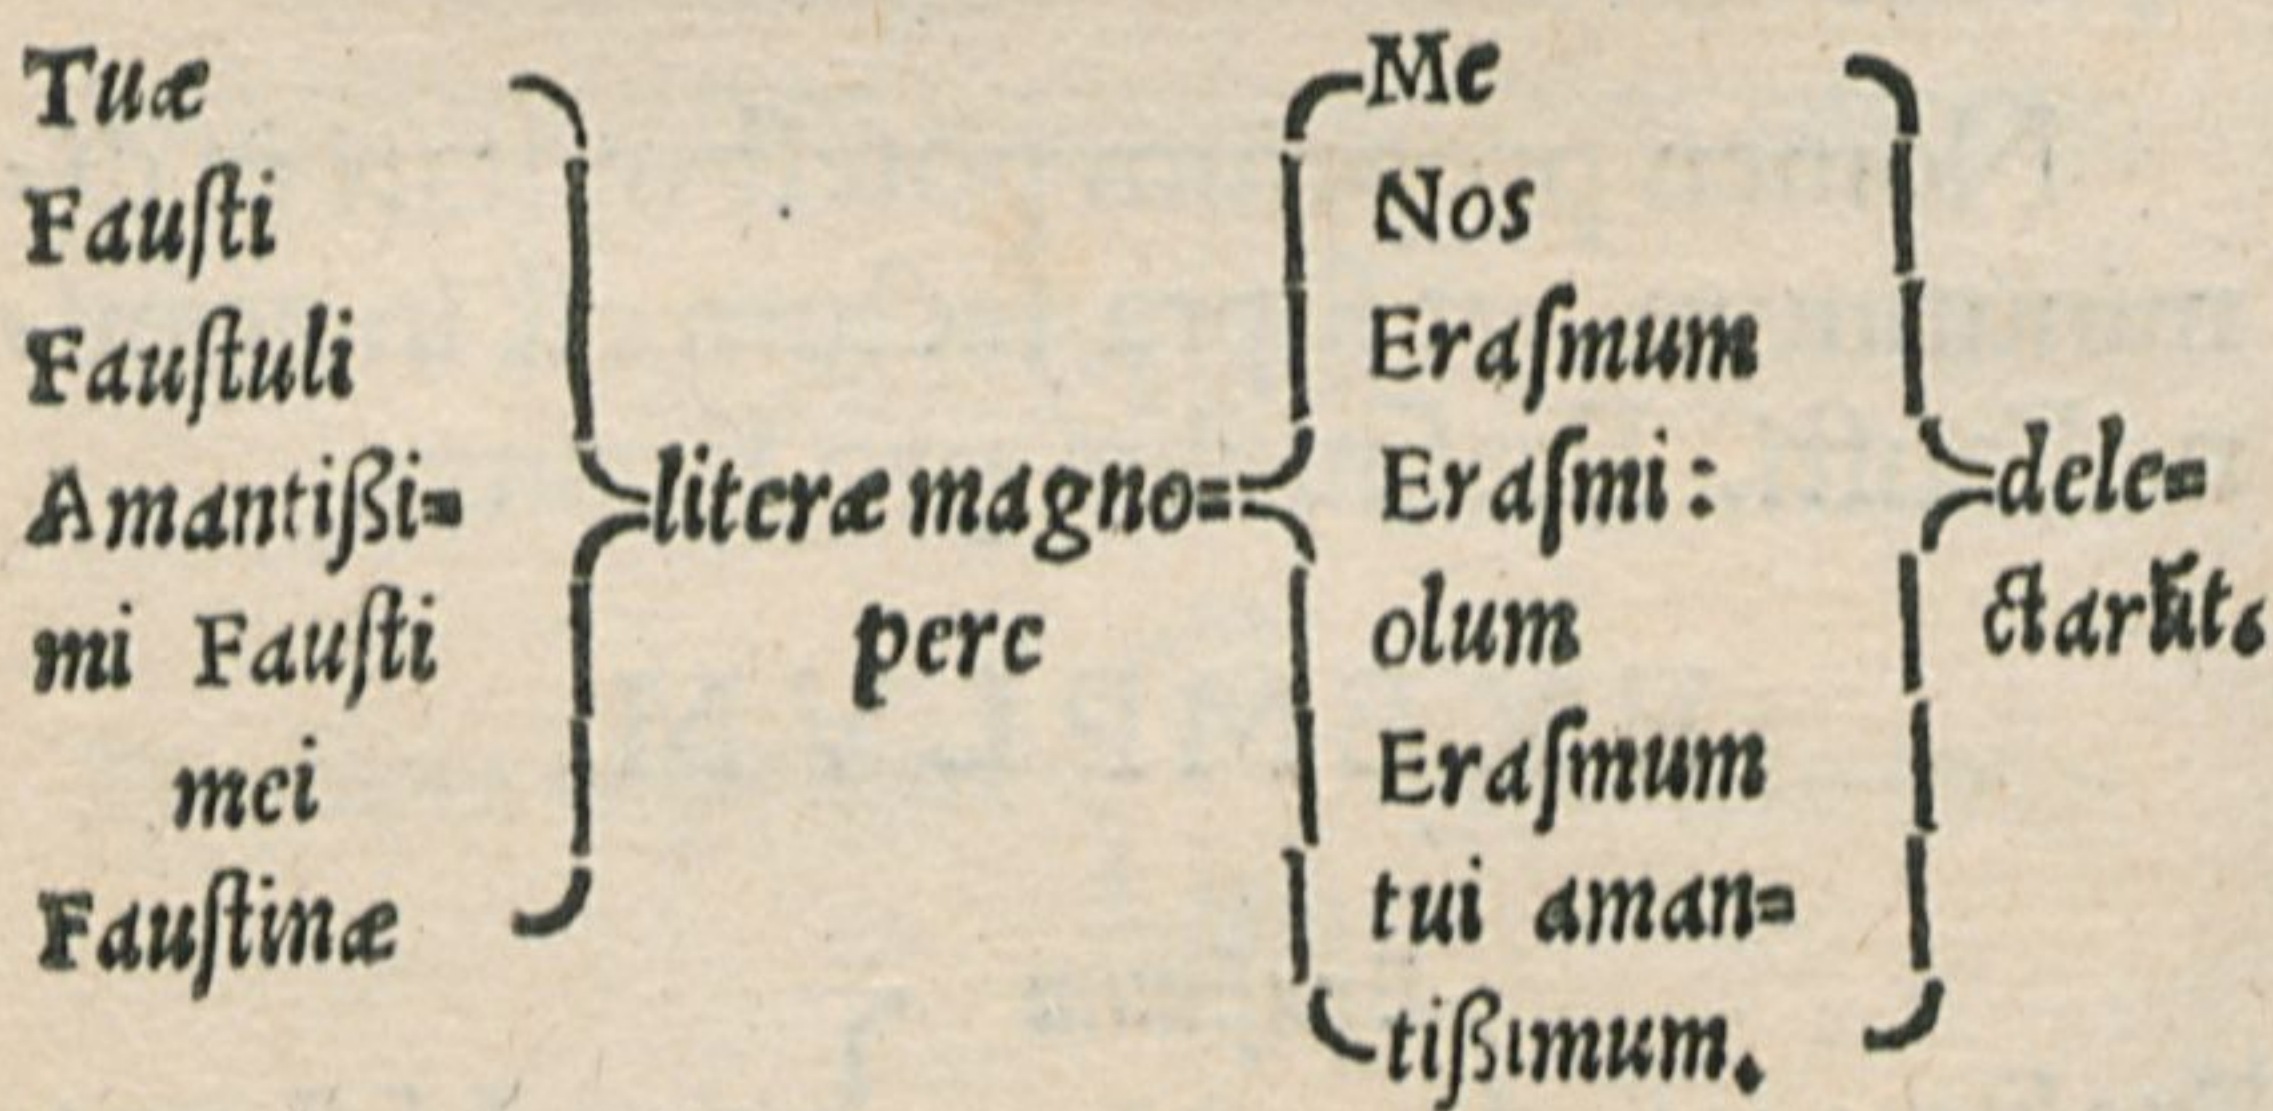 Tuæ
Fauſti
Fauſtuli
Amantißi=
mi Fauſti
mei
Fauſtinæ
literæ magno=
pere
Me
Nos
Eraſmum
Eraſmi:
olum
Eraſmum
tui aman=
tißimum.
dele=
ctarūt.